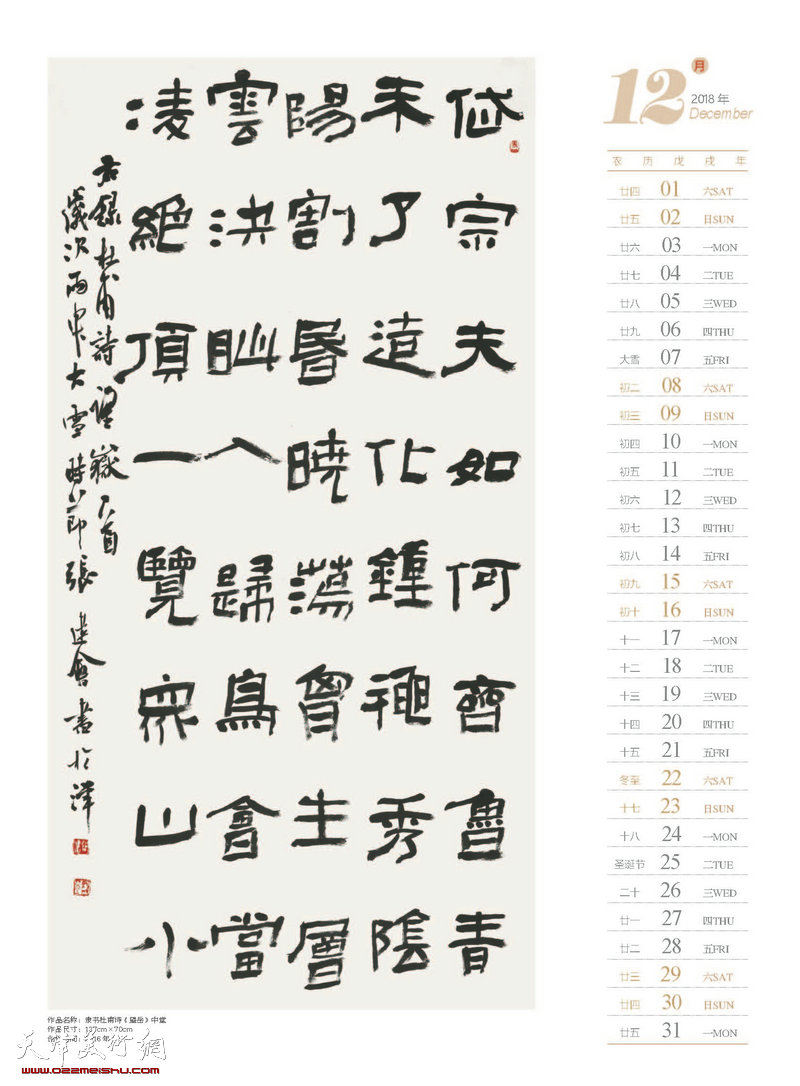 岱宗夫如何齊魯青
未了造化鍾神秀陰
陽割昬曉蕩胷生層
雲決眦入歸鳥會當
凌絕頂一覽眾山小
右錄杜甫詩望嶽一首
歲次丙申大雪時節張建會書於津
作品名称：隶书杜甫诗《望岳》中堂
作品尺寸：137cm×70cm
天津美術網
www.022meishu.com
12月
2018 年
December
农 历 戊 戌 年
廿四 01 六SAT
廿五 02 日SUN
廿六 03 一MON
廿七 04 二TUE
廿八 05 三WED
廿九 06 四THU
大雪 07 五FRI
初二 08 六SAT
初三 09 日SUN
初四 10 一MON
初五 11 二TUE
初六 12 三WED
初七 13 四THU
初八 14 五FRI
初九 15 六SAT
初十 16 日SUN
十一 17 一MON
十二 18 二TUE
十三 19 三WED
十四 20 四THU
十五 21 五FRI
冬至 22 六SAT
十七 23 日SUN
十八 24 一MON
圣诞节 25 二TUE
二十 26 三WED
廿一 27 四THU
廿二 28 五FRI
廿三 29 六SAT
廿四 30 日SUN
廿五 31 一MON